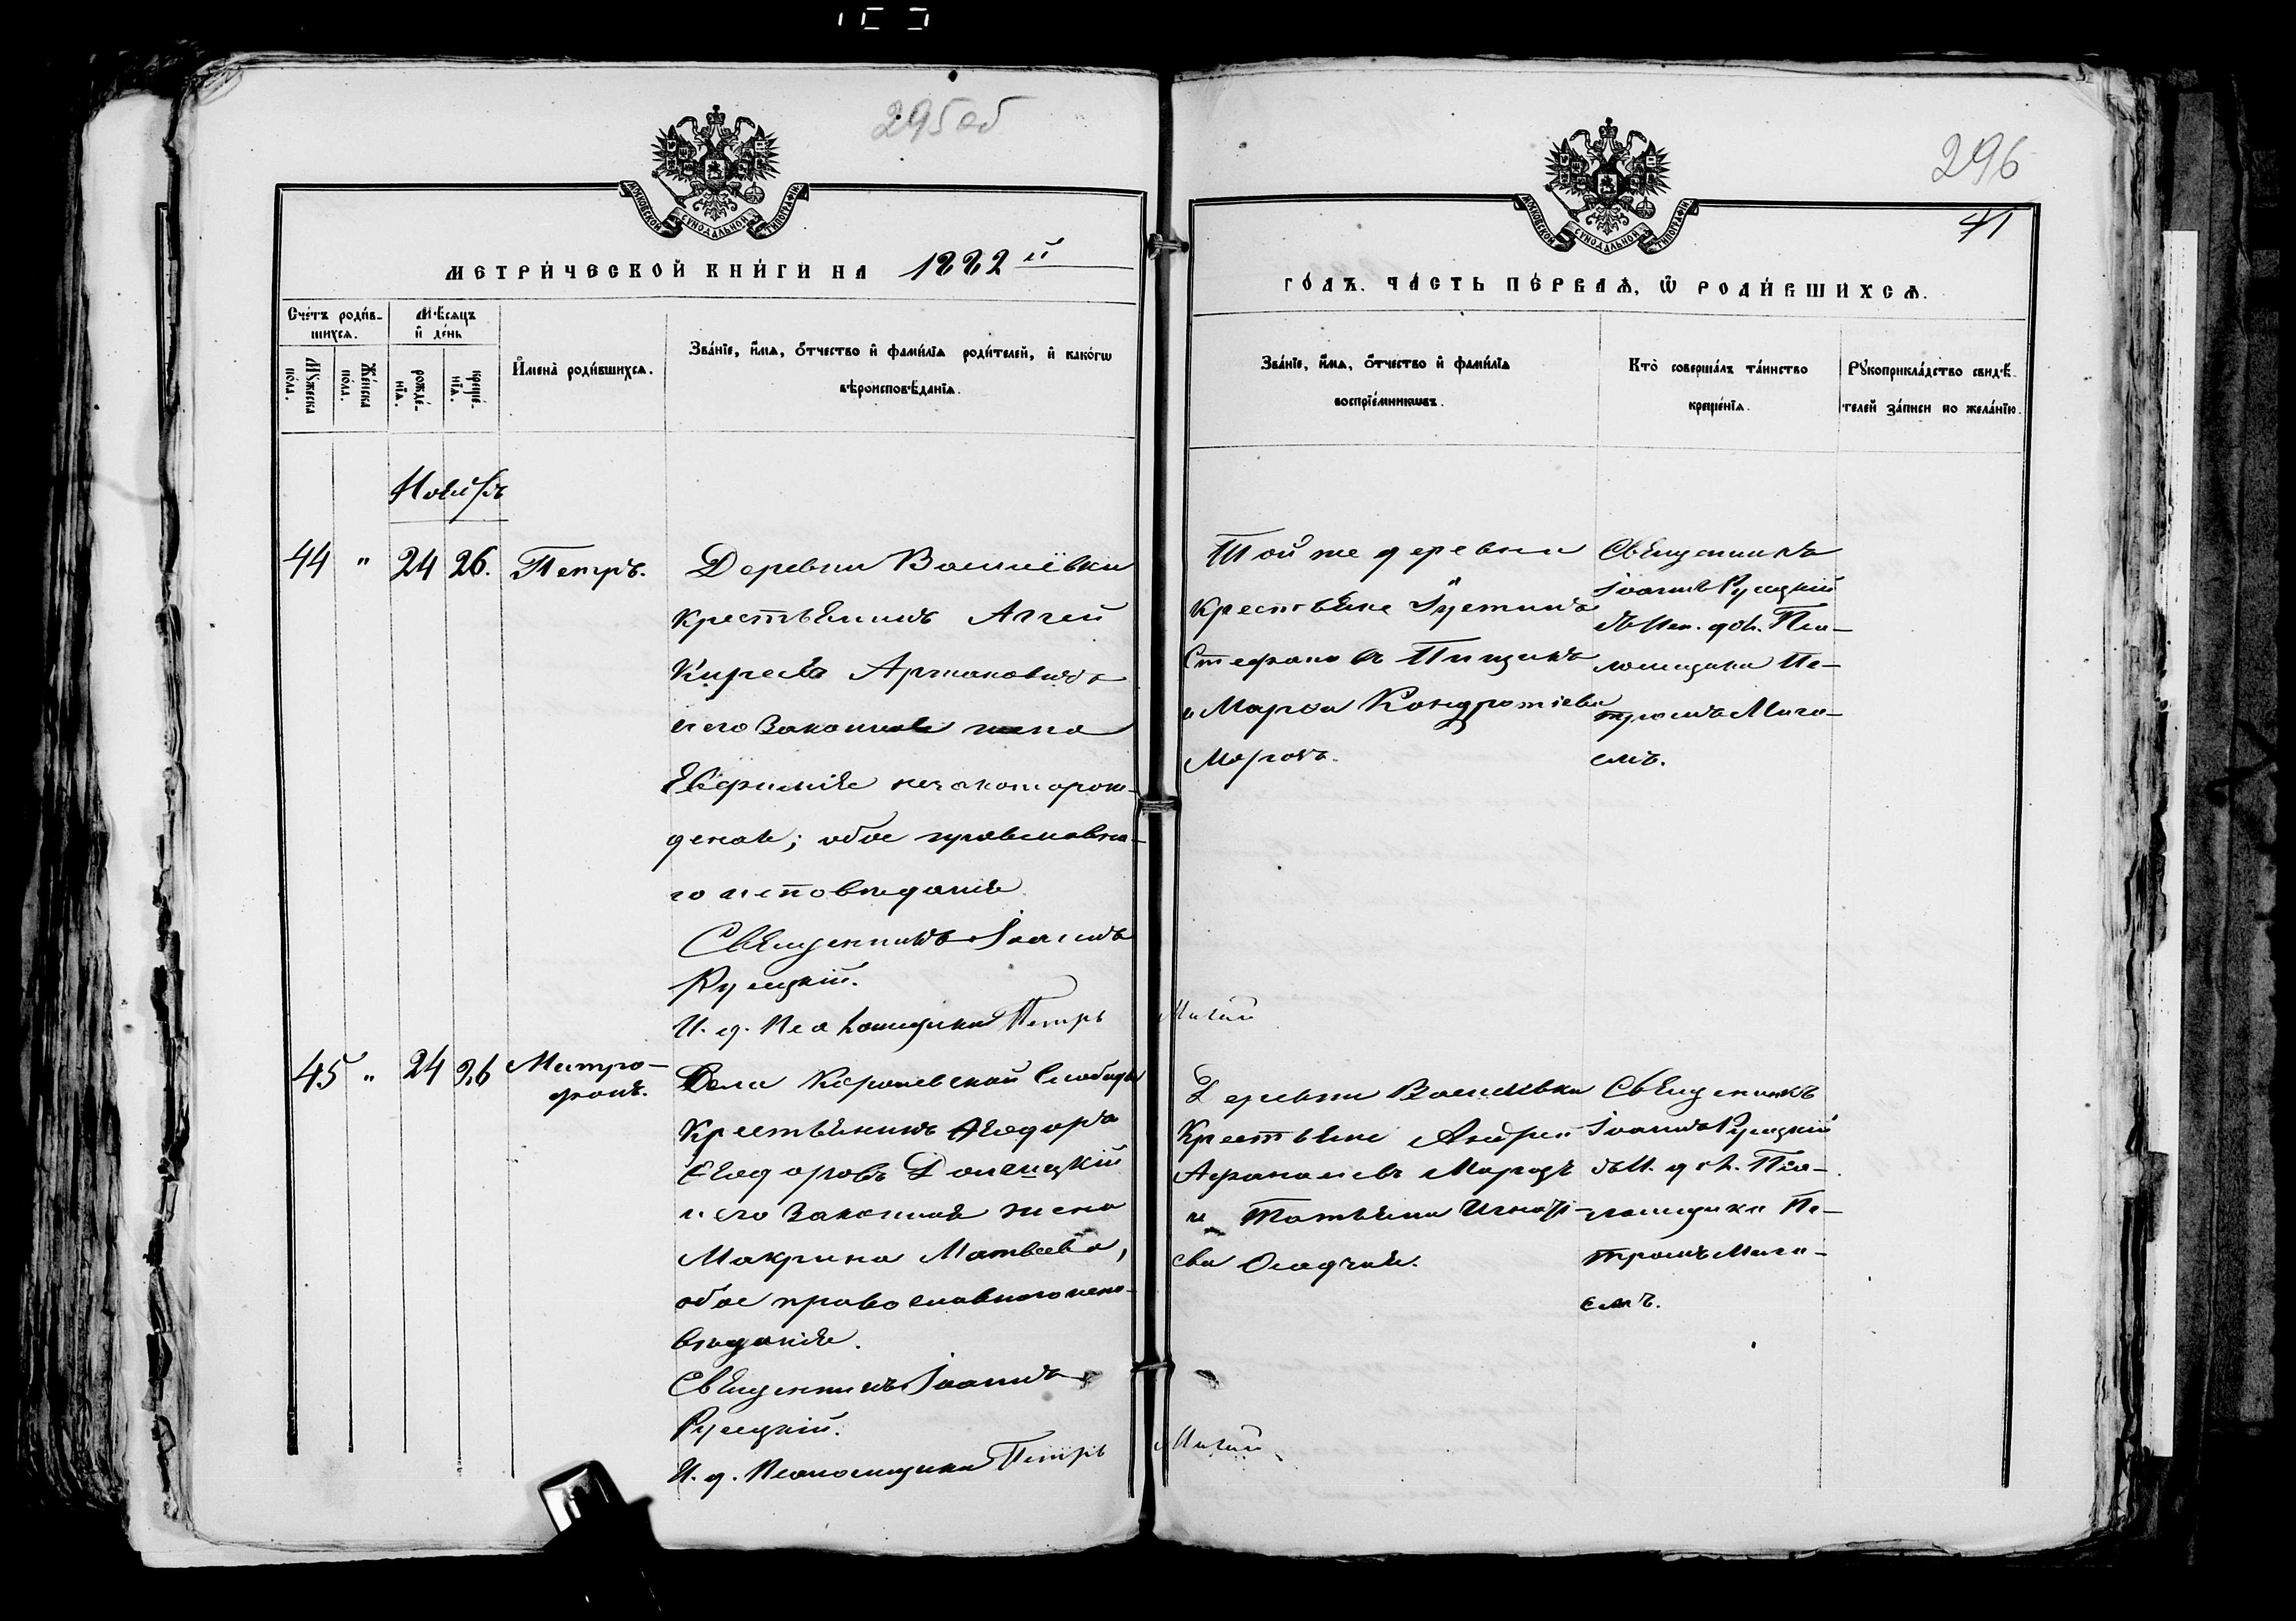 295об
МОСКОВСКОЙ СѴНОДАЛЬНОЙ ТИПОГРАФІИ
МЕТРИ́ЧЕСКОЙ КНИ́ГИ НА 1882й
Сче́тъ роди́в-
шихсѧ.
Мѣ́сяцъ
и҆ де́нь
Мꙋ́жеска
по́ла.
Же́нска
по́ла.
рожде́-
нїѧ.
креще́-
нїѧ.
И҆мена̀ роди́вшихсѧ.
Зва́нїе, и҆́мѧ, ѻ҆́тчество и҆ фами́лїѧ роди́телей, и҆ како́гѡ
вѣроисповѣ́данїѧ.
Ноябрь
44 " 24 26. Петръ.
Деревни
крестьянинъ Аггей
Киреевъ
и его законная жена
незаконорож-
деная; обое православна-
го исповѣданія
Священникъ Іоаннъ
И. д. Псаломщика Петръ Мигай
45 " 24 26 Митро-
фанъ.
Села Королевской Слободы
Крестьянинъ Ѳеодоръ
Ѳеодоровъ Донецкій
и его законная жена
Макрина Матвѣева,
обое православнаго испо-
вѣданія.
Священникъ Іоаннъ
И. д. Псаломщика Петръ Мигай
296
41
МОСКОВСКОЙ СѴНОДАЛЬНОЙ ТИПОГРАФІИ
ГО́ДЪ. ЧА́СТЬ ПЕ́РВАѦ, Ѡ҆ РОДИ́ВШИХСѦ.
Зва́нїе, и҆́мѧ, ѻ҆́тчество и҆ фами́лїѧ
воспрїе́мникѡвъ.
Кто̀ соверша́лъ та́инство
креще́нїѧ.
Рꙋкоприкла́дство свидѣ́-
телей за́писи по жела́нїю.
Той же деревни
крестьяне Іустинъ
Стефановъ
и Марѳа Кондратіева
Морозъ.
Священникъ
Іоаннъ
съ Исп. дол. Пса-
ломщика Пе-
тромъ Мига-
емъ.
Деревни
Крестьяне Андрей
Афанасіевъ Морозъ
и Татьяна Игнаті-
ева Осадчая.
Священникъ
Іоаннъ
съ И. дол. Пса-
ломщика Пе-
тромъ Мига-
емъ.